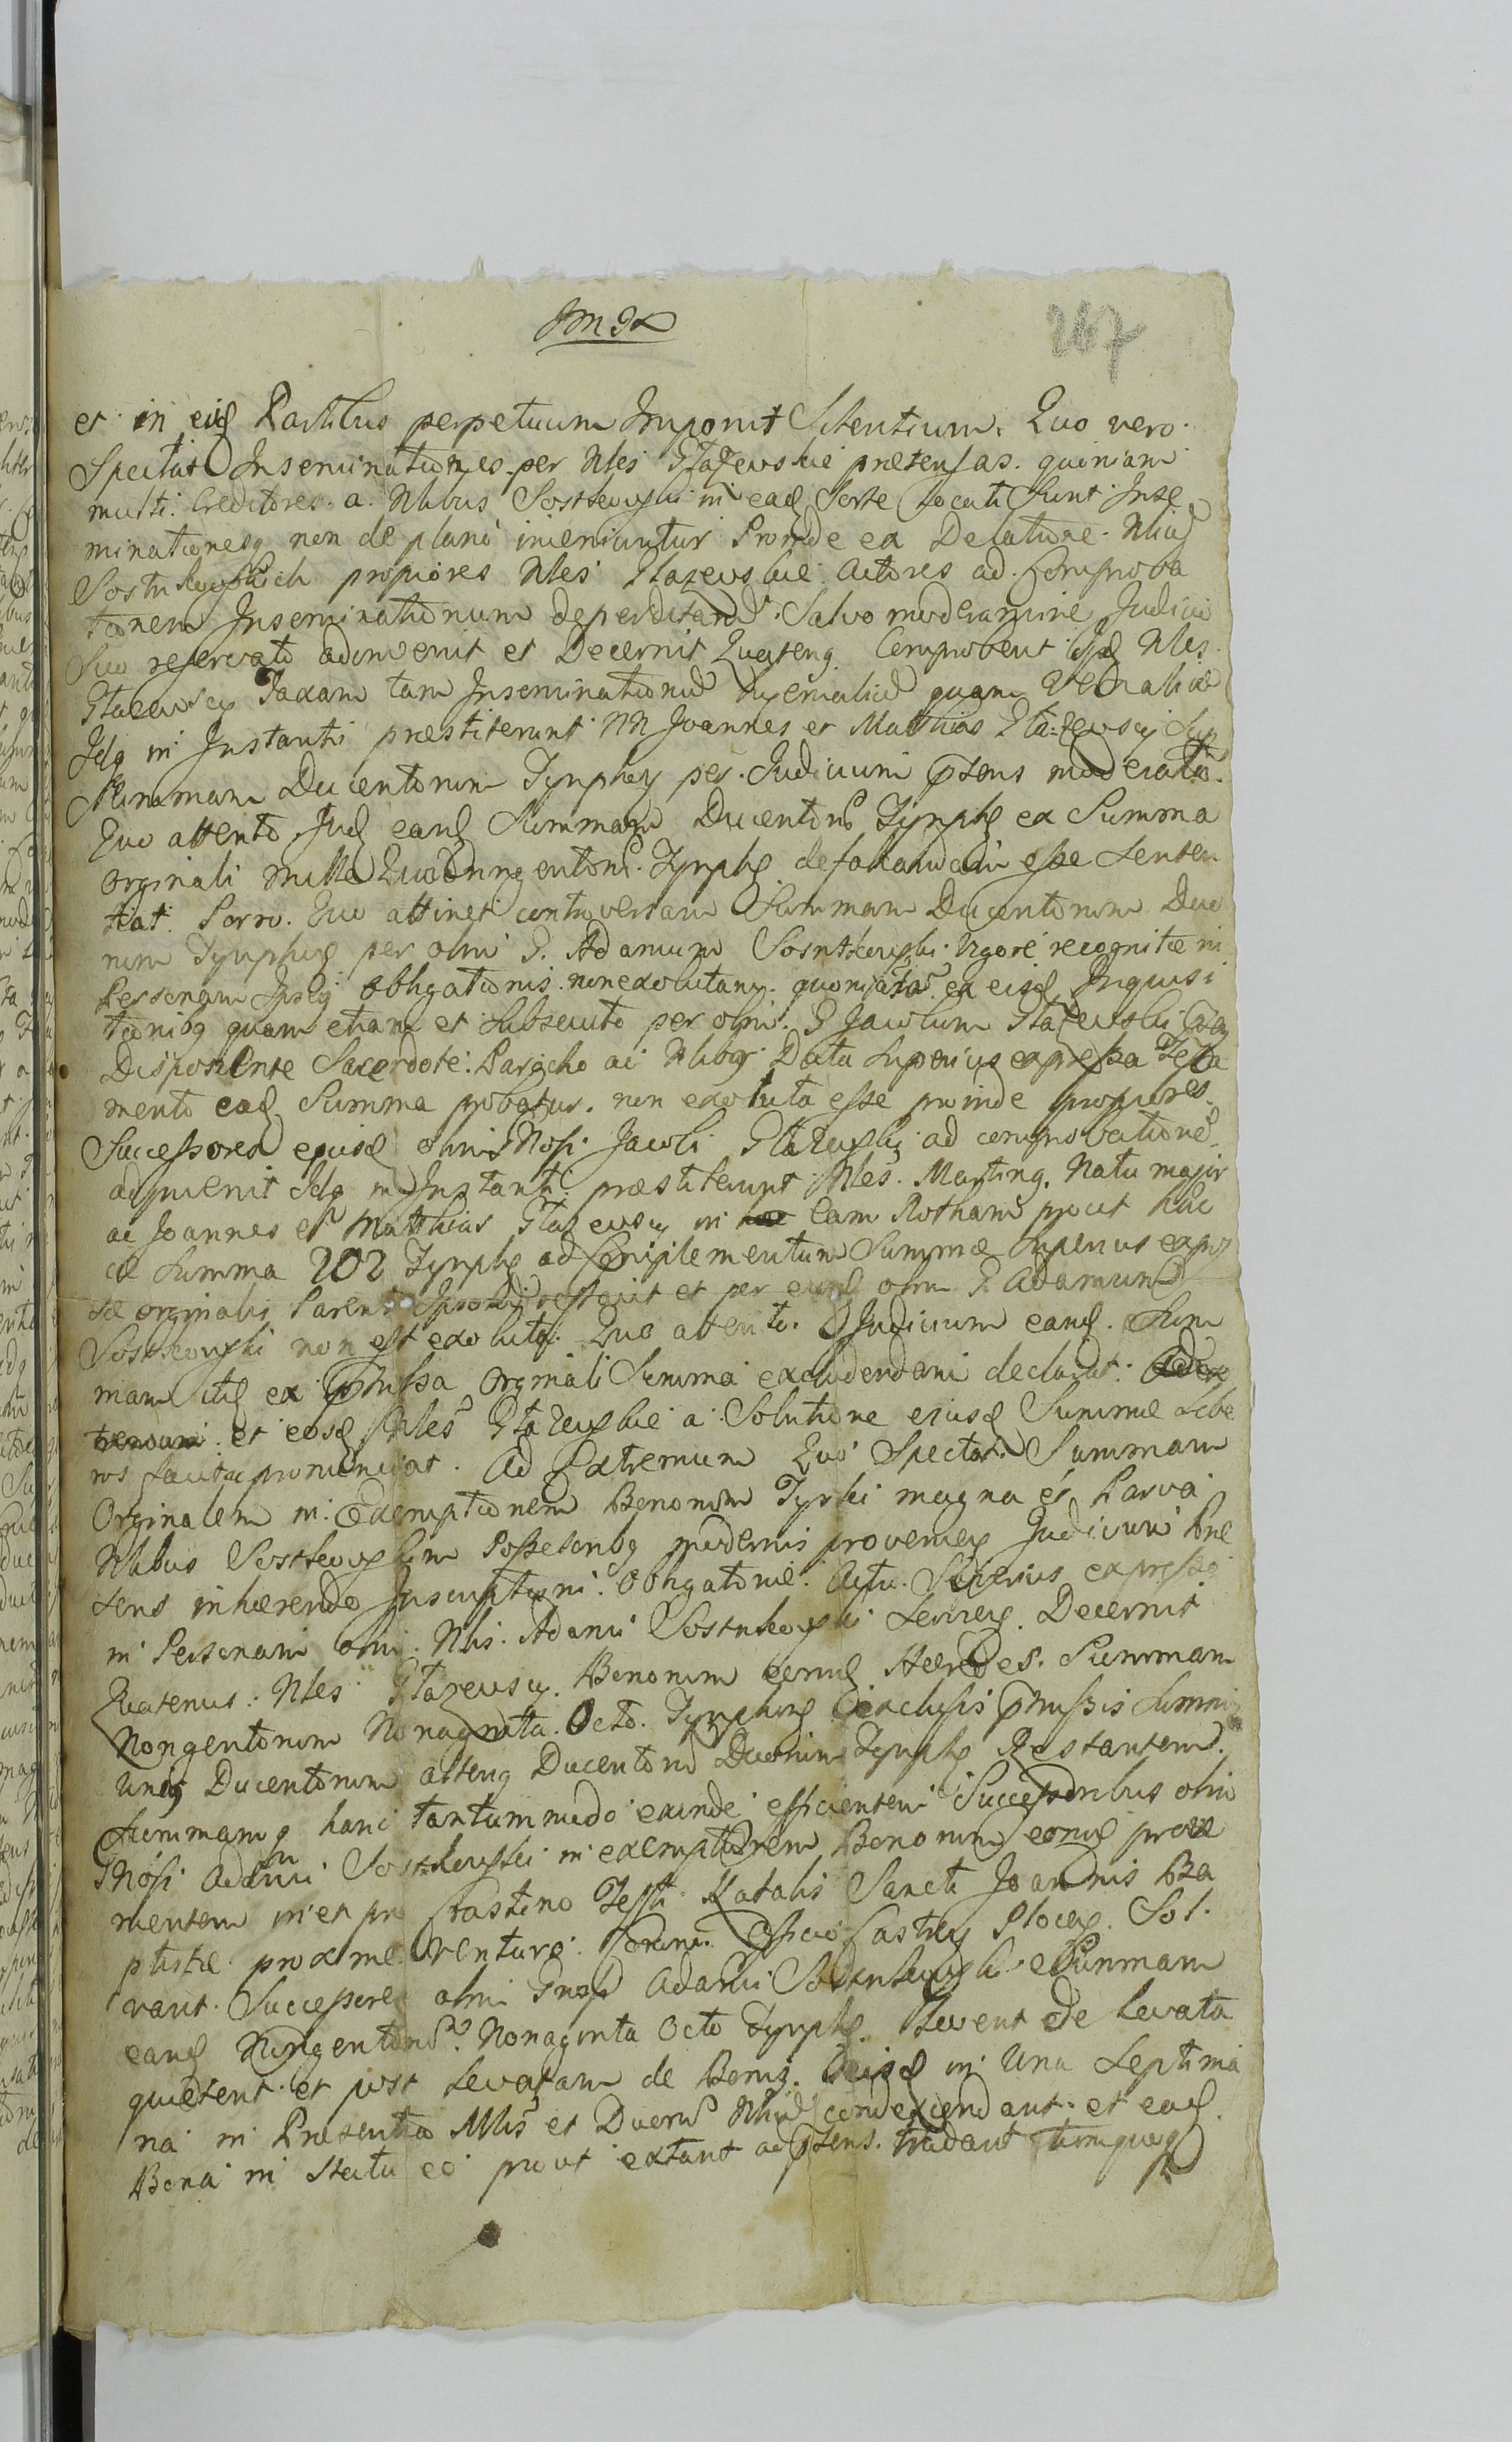 267
et in eisd Partibus perpetuum Imponit Silentium. Quo vero
Spectat Inseminationes per Nles Głazewskie prætensas. quoniam
multi Creditores a Nlibus Sostkowski in ead Sorte locati Sunt Inse
minationesq non de plano inveniuntur Proinde ex Delatione Nliu
propiores Nles Głazewskie Actores ad Comproba
tionem Inseminationum deperditard. Salvo moderamine Judicii
Suo reservato adinvenit et Decernit Quateng Comprobent ijsd Nles
Głazewscy Taxam tam Inseminationu hyemaliu quam Vernaliu
Idq in Instanti præstiterunt NN Joannes et Mathias Głazewscy Sup
Summam Ducentorum Tynphor per Judicium pntens moderata.
Quo attento Jud eand Summam Ducentoru Tynphor ex Summa
Orginali Mille Quadringentoru Tynphor defalcandam esse Senten
tiat. Porro Quo attinet controversam Summam Ducentorum Duo
rum Tynphor per olim G. Adamum Sosntkowski Vigore recognitæ in
Personam Ipsius Obligationis non exolutam. quoniam ex eisd Inquisi
tionibq quam etiam et Subsecuto per olim G Jacobum Głazewski
Disponente Sacerdote Parocho ac Data Superius expressa Testa
mento ead Summa probatur non exoluta esse proinde propiores
Successores ejusd olim Gnosi Jacobi Głazewski ad comprobatione
adinvenit Idq in Instanti præstiterunt Nles Marting Natu major
ac Joannes et Mathias Głazewscy in eam Rotham prout hæc
ce Summa 202 Tynphor ad Complementum Summæ Superius expres
sæ orginalis Parenti restavit et per eund olim G. Adamum
Sostkowski non est exoluta. Quo attento Judicium eand Sum
mam itid ex pmissa Orginali Summa excludendam declarat
et eosd Nles Głazewskie a Solutione ejusd Summæ Libe
ros facit ac pronunciat. Ad Extremum Quo Spectat Summam
Orginalem in Exemptionem Bonorum Tyski magna et Parva
Nlibus Sostkowskim Possesoribq modernis provenien Judicium Præ
sens inhærendo Inscriptioni Obligatoriæ Actu Superius expresso
in Personam olim Nlis Adami Sostnkowski Servien Decernit
Quatenus Nles Głazewscy Bonorum eorund Hæredes Summam
Nongentorum Nonaginta Octo Tynphor Exclusis pmissis Summis
Una Ducentorum alteraq Ducentoru Duorum Tynphor Restantem
Summamq hanc tantummodo exinde efficientem Successoribus olim
Gnosi Adami Sostkowski in exemptionem Bonorum eorund prove
nientem in et pro Crastino Festi Natalis Sancti Joannis Ba
ptistæ proxime venturo Coram Officio Castren Plocen Sol
vant Successores olim Gnosi Adami Sostnkowski Summam
eand Nongentoru Nonaginta Octo Tynphor Levent de Levata
quietent et post Levatam de Bonis eisd in Una Septima
na in Præsentia Mlis et Duoru Nliu condescendant et ead
Bona in Statu eo prout extant ad præsens tradant